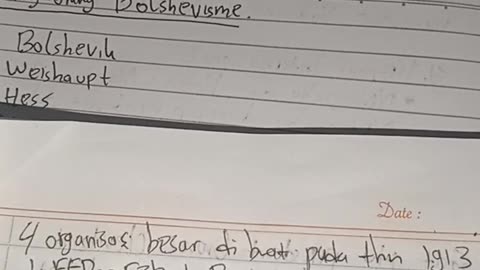 Bolshevisme.
Bolshevik
Weishaupt
Hess
Date :
4 organisasi besar di buat pada thin 1913